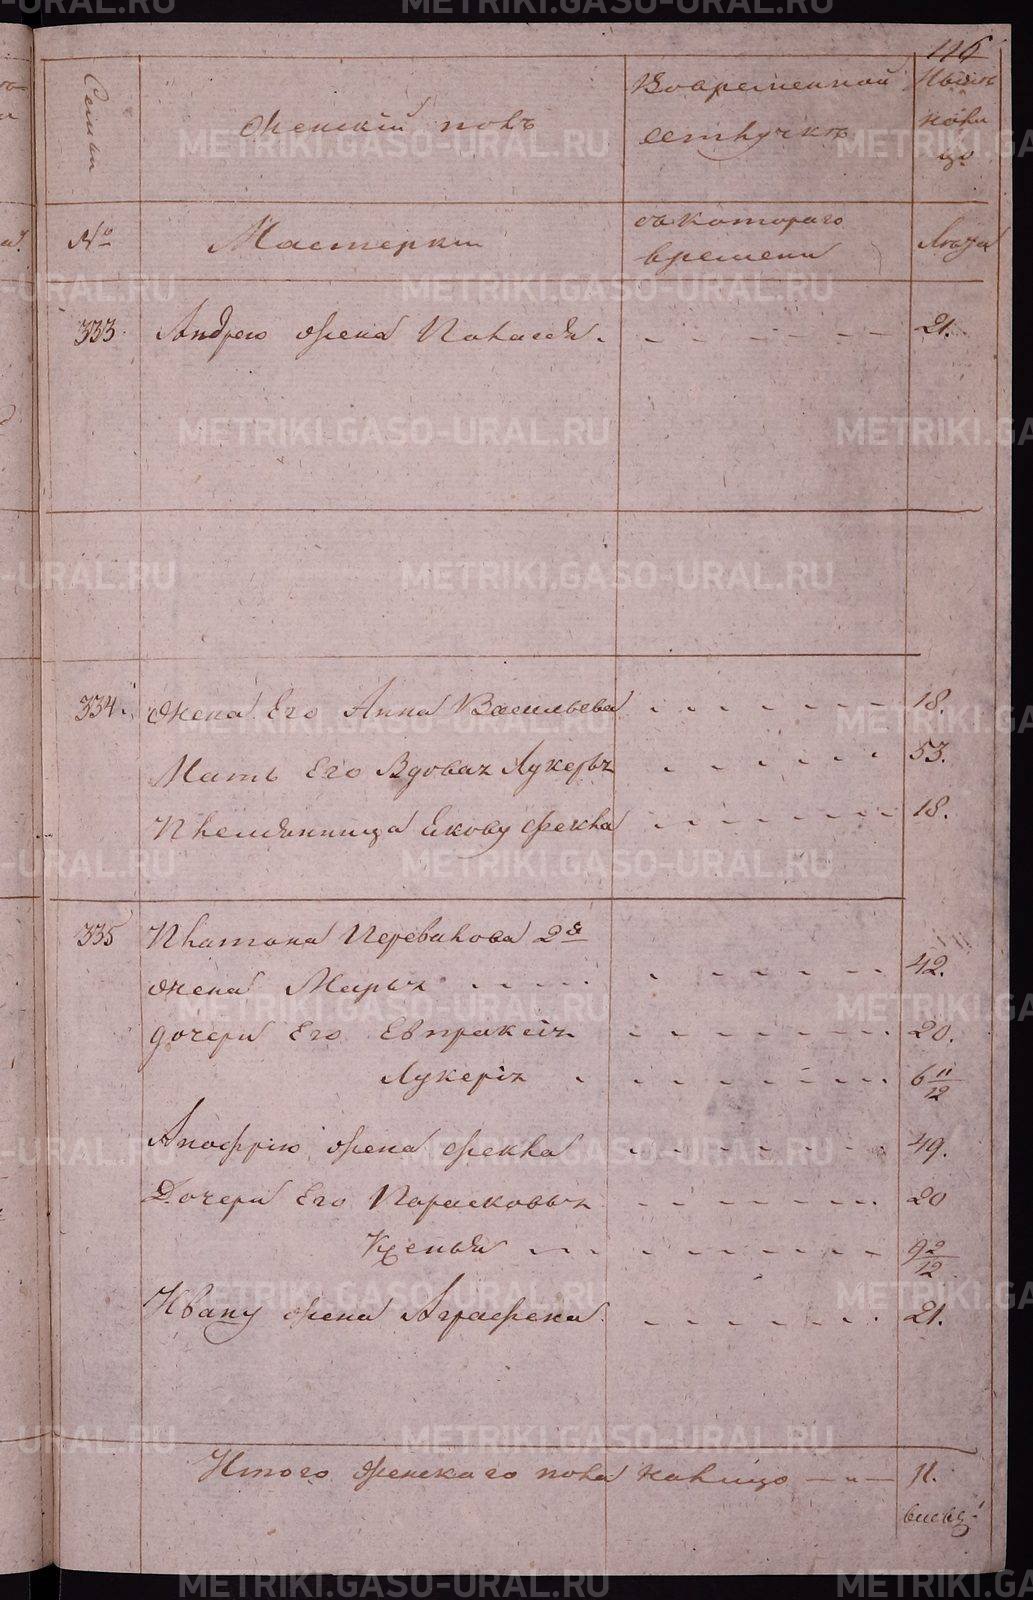 116
Семьи
Женскій полъ
Вовременной
отлучкѣ
Ныне
на ли
цо
№
Мастерки
съ котораго
времени
Лѣта
333. Андрею жена Пелагея. 21.
334. Жена Его Анна Васильева 18.
Мать Его Вдовая Лукерья 53.
Племянница Якову Фекла 18.
335 Платона Перевалова 2я
жена Марья 42.
дочери Его Евпраксія 20.
Лукерія 6 11/12
жена Фекла 49.
Дочери Его Парасковья 20
Ксенья 9 2/12
Ивану жена Аграфена 21.
Итого женскаго пола налицо 11.
METRIKI.GASO-URAL.RU